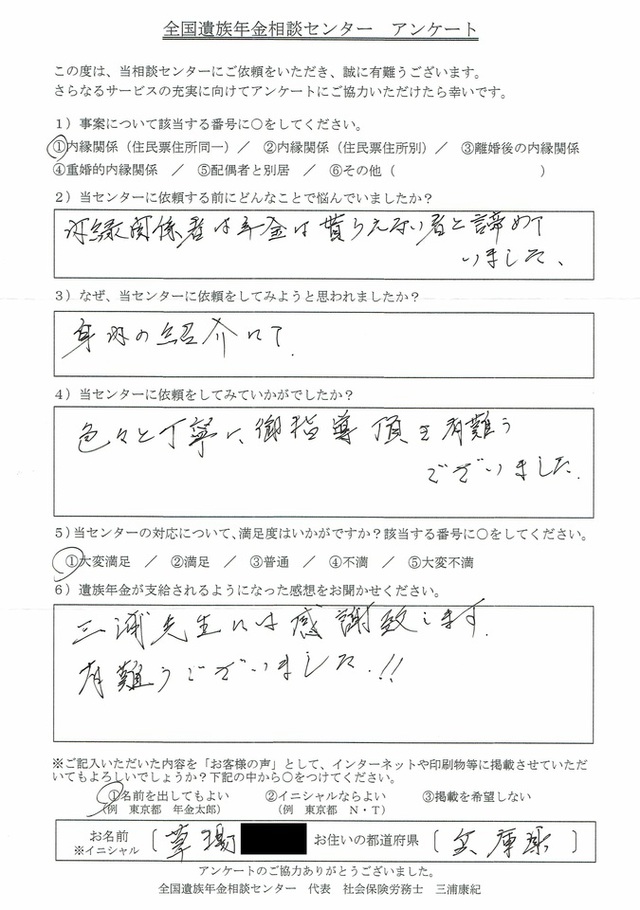 全国遺族年金相談センター　アンケート
この度は、当相談センターにご依頼をいただき、誠に有難うございます。
さらなるサービスの充実に向けてアンケートにご協力いただけたら幸いです。
1）事案について該当する番号に○をしてください。
①内縁関係（住民票住所同一）／　②内縁関係（住民票住所別）／　③離婚後の内縁関係
④重婚的内縁関係　／　⑤配偶者と別居　／　⑥その他（　　　　　　　　　）
2）当センターに依頼する前にどんなことで悩んでいましたか？
内縁関係者は年金は貰らえない者と諦めて
いました、
3）なぜ、当センターに依頼をしてみようと思われましたか？
身内の紹介にて.
4）当センターに依頼をしてみていかがでしたか？
色々と丁寧に、御指導頂き有難う
ございました.
5）当センターの対応について、満足度はいかがですか？該当する番号に○をしてください。
①大変満足　／　②満足　／　③普通　／　④不満　／　⑤大変不満
6）遺族年金が支給されるようになった感想をお聞かせください。
三浦先生には感謝致します.
有難うございました.!!
※ご記入いただいた内容を「お客様の声」として、インターネットや印刷物等に掲載させていただ
いてもよろしいでしょうか？下記の中から○をつけてください。
①名前を出してもよい　　②イニシャルならよい　　③掲載を希望しない
（例　東京都　年金太郎）　　（例　東京都　N・T）
お名前
※イニシャル
〔草場　　　　お住いの都道府県　〔兵庫県〕
アンケートのご協力ありがとうございました。
全国遺族年金相談センター　代表　社会保険労務士　三浦康紀